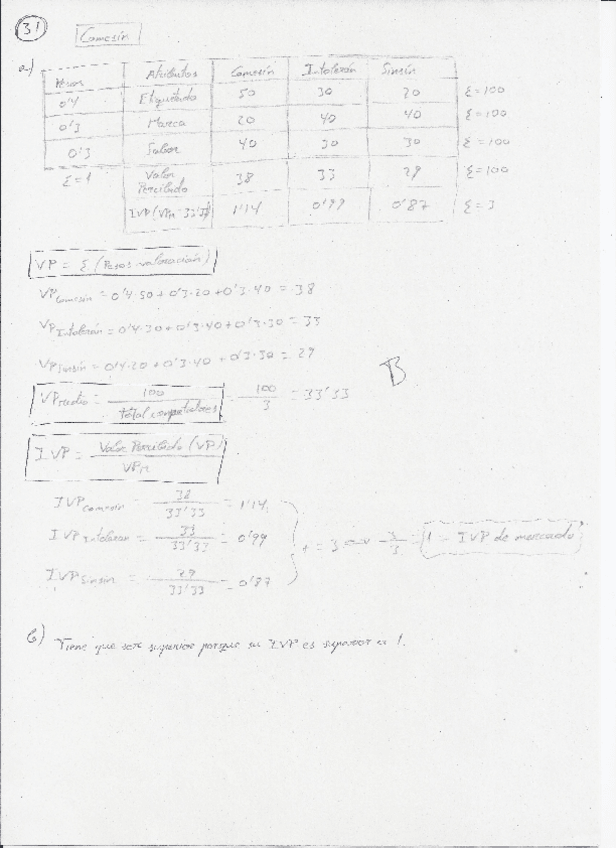 31
Comesín
a)
Pesos Atributos Comesín Intolerán Sinsín
0'4 Etiquetado 50 30 20 Σ=100
0'3 Marca 20 40 40 Σ=100
0'3 Sabor 40 30 30 Σ=100
Σ=1 Valor Percibido 38 33 29 Σ=100
IVP (VPM=33'33) 1'14 0'99 0'87 Σ=3
VP = Σ (Pesos·valoración)
VP Comesín = 0'4·50+0'3·20+0'3·40 = 38
VP Intolerán = 0'4·30+0'3·40+0'3·30 = 33
VP Sinsín = 0'4·20+0'3·40+0'3·30 = 29
B
VP medio = 100 / total competidores = 100 / 3 = 33'33
IVP = Valor Percibido (VP) / VPM
IVP Comesín = 38 / 33'33 = 1'14
IVP Intolerán = 33 / 33'33 = 0'99
+ = 3 3/3 = 1 = IVP de mercado
IVP Sinsín = 29 / 33'33 = 0'87
b) Tiene que ser superior porque su IVP es superior a 1.